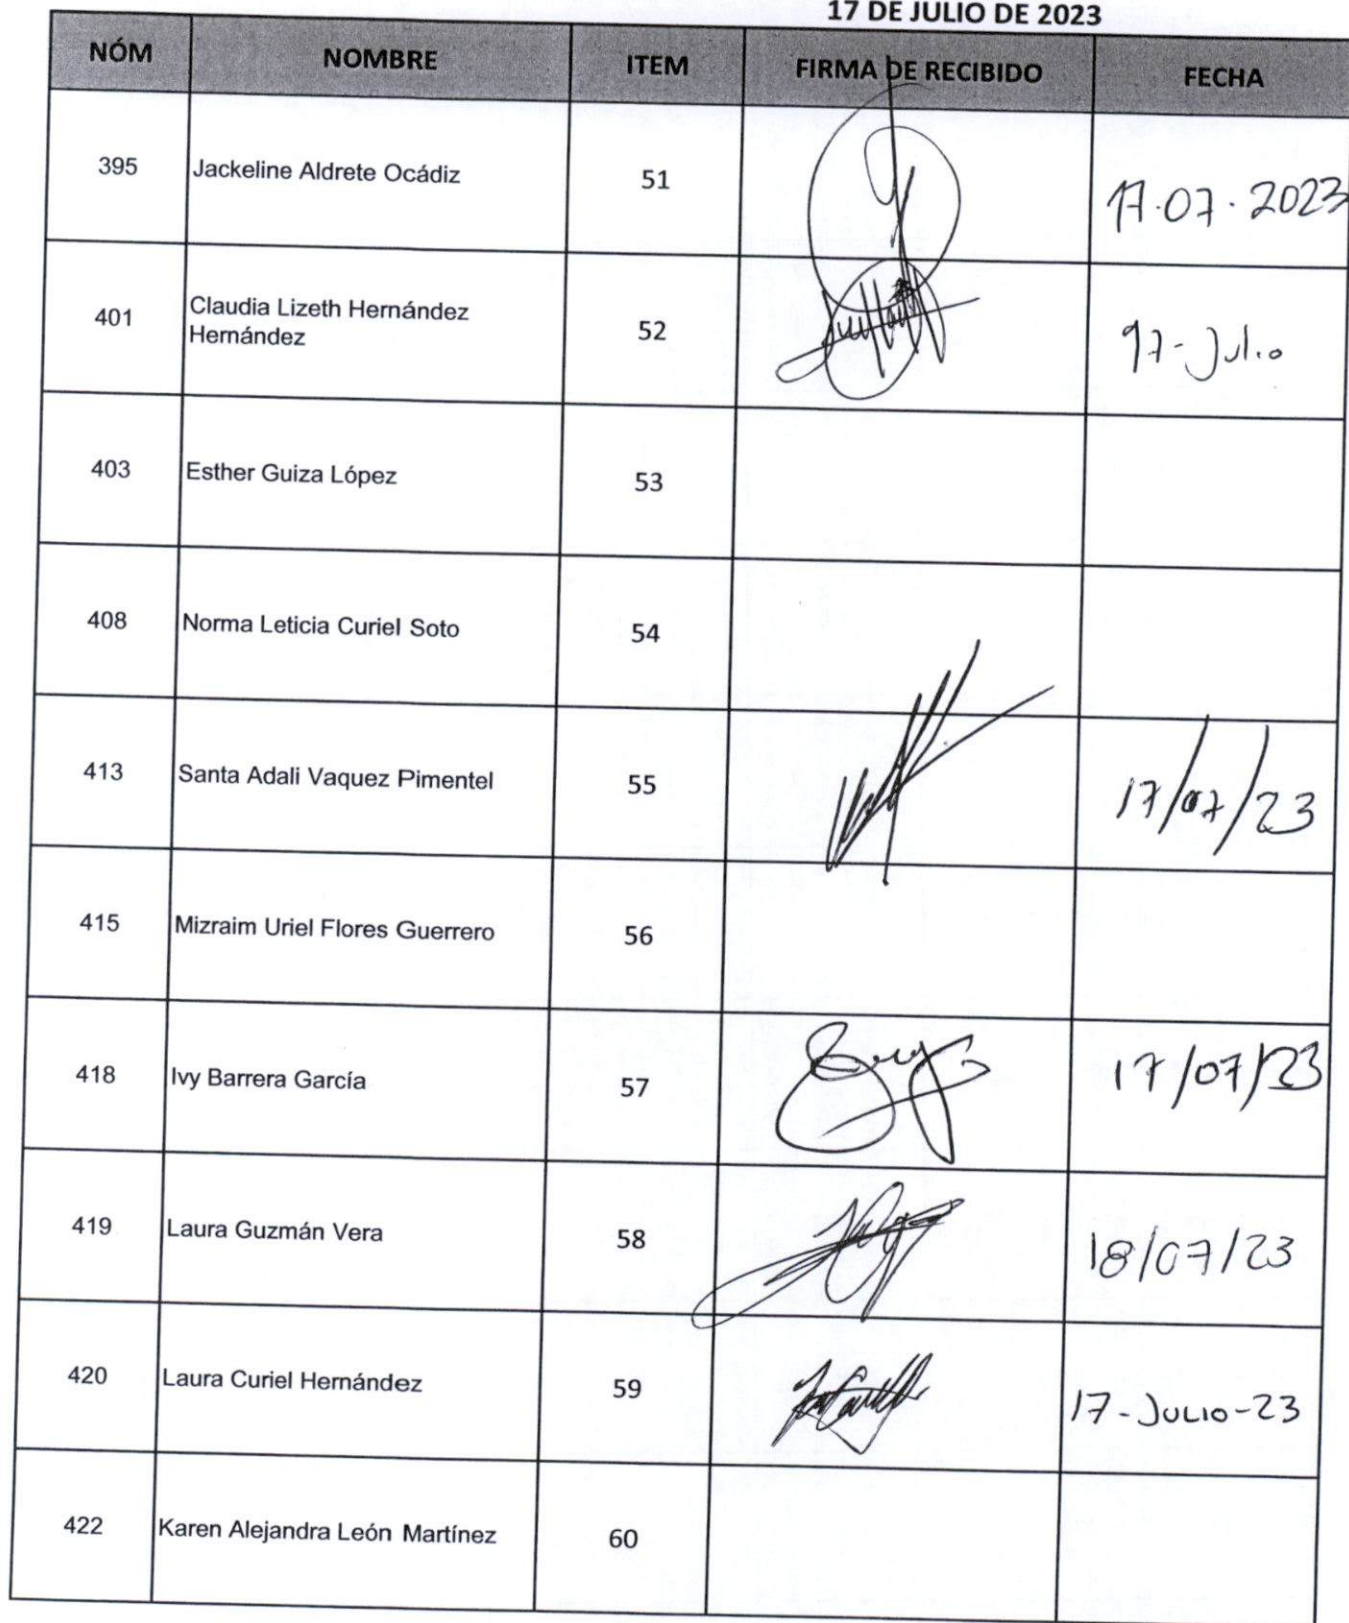 17 DE JULIO DE 2023
NÓM NOMBRE ITEM FIRMA DE RECIBIDO FECHA
395 Jackeline Aldrete Ocádiz 51 17.07.2023
401 Claudia Lizeth Hernández
Hernández 52 17-Julio
403 Esther Guiza López 53
408 Norma Leticia Curiel Soto 54
413 Santa Adali Vaquez Pimentel 55 17/07/23
415 Mizraim Uriel Flores Guerrero 56
418 Ivy Barrera García 57 17/07/23
419 Laura Guzmán Vera 58 18/07/23
420 Laura Curiel Hernández 59 17-JULIO-23
422 Karen Alejandra León Martínez 60